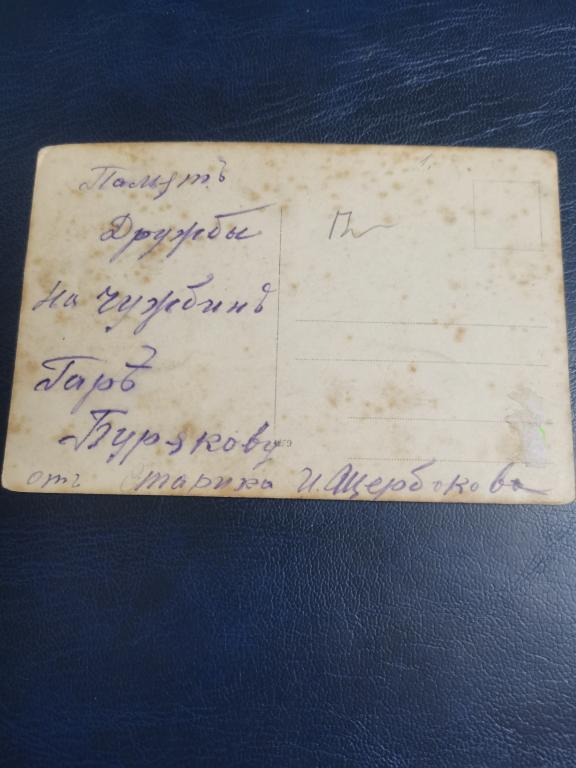 Памятъ
Дружбы
на чужбинѣ
Гарѣ
Бурякову
отъ Старика И. Щербакова